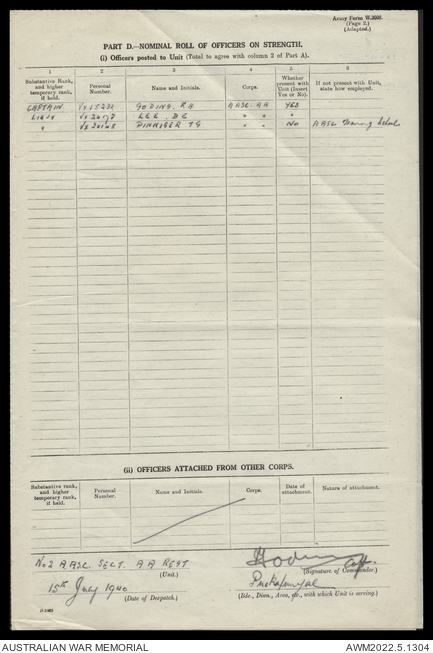 Army Form W.3008.
(Page 2.)
(Adapted.)
PART D.—NOMINAL ROLL OF OFFICERS ON STRENGTH.
(i) Officers posted to Unit (Total to agree with column 2 of Part A).
1 2 3 4 5 6
Substantive Rank, and higher temporary rank, if held. Personal Number. Name and Initials. Corps. Whether present with Unit (Insert Yes or No). If not present with Unit, state how employed.
CAPTAIN VX15232 GODING. R A AASC. AA YES
Lieut LEE. D C " " "
" PINNIGER T G " " No AASC Training School
(ii) OFFICERS ATTACHED FROM OTHER CORPS.
Substantive rank, and higher temporary rank, if held. Personal Number. Name and Initials. Corps. Date of attachment. Nature of attachment.
No 2 AASC SECT. AA REGT
(Unit.)
(Signature of Commander.)
15th July 1940
(Date of Despatch.)
Puckapunyal
(Bde., Divn., Area, etc., with which Unit is serving.)
AUSTRALIAN WAR MEMORIAL
AWM2022.5.1304